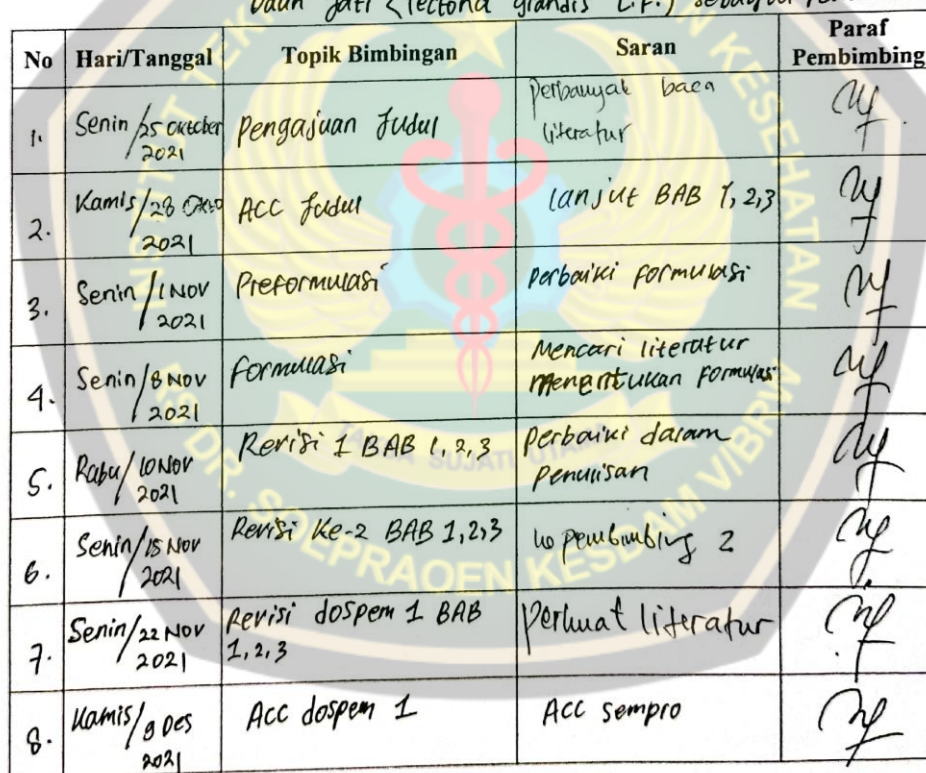 Daun Jati (Tectona grandis L.F.) sebagai
No Hari/Tanggal Topik Bimbingan Saran Paraf Pembimbing
1. Senin/25 Oktober 2021 Pengajuan Judul Perbanyak baca literatur
2. Kamis/28 Okto 2021 ACC Judul Lanjut BAB 1,2,3
3. Senin/1 Nov 2021 Preformulasi Perbaiki formulasi
4. Senin/8 Nov 2021 Formulasi Mencari literatur menentukan formulasi
5. Rabu/10 Nov 2021 Revisi 1 BAB 1,2,3 Perbaiki dalam penulisan
6. Senin/15 Nov 2021 Revisi Ke-2 BAB 1,2,3 pembimbing 2
7. Senin/22 Nov 2021 Revisi dospem 1 BAB 1,2,3 Perkuat literatur
8. Kamis/9 Des 2021 Acc dospem 1 ACC sempro
KESEHATAN
RS DR. SOEPRAOEN KESDAM V/BRW